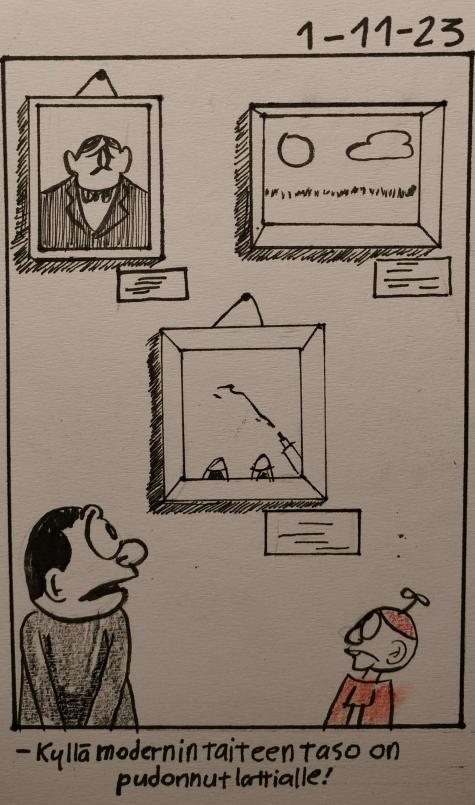 1-11-23
- Kyllä modernin taiteen taso on
pudonnut lattialle!